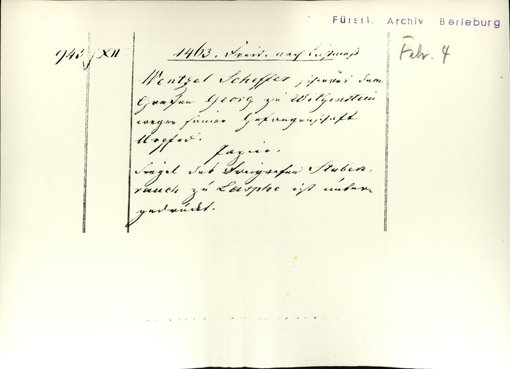 Fürstl. Archiv Berleburg
945 XII
1463. Freit. nach Lichtmeß
Febr. 4
Wentzel Scheffer, schwört dem
Grafen Georg zu Witgenstein
wegen seiner Gefangenschaft
Urpfed.
Papier.
Siegel des Freigrafen Stuben-
rauch zu Laasphe ist unter-
gedrückt.